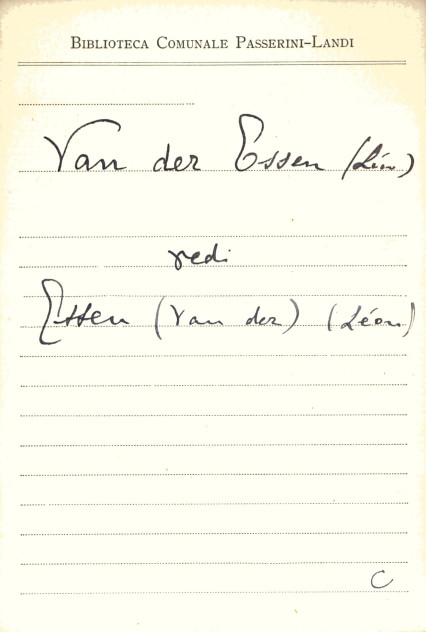 BIBLIOTECA COMUNALE PASSERINI-LANDI
Van der Essen (Léon)
vedi
Essen (Van der) (Léon)
C